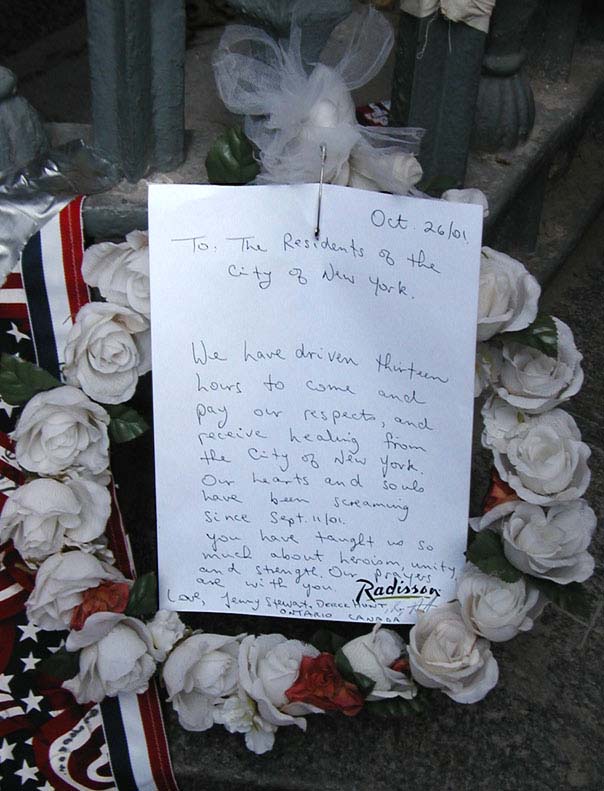 Oct. 26/01.
To: The Residents of the
City of New York.
We have driven thirteen
hours to come and
pay our respects, and
receive healing from
the City of New York.
Our hearts and souls
have been screaming
since Sept. 11/01.
you have taught us so
much about heroism, unity,
and strength. Our prayers
are with you.
Radisson
Love, Jenny Stewart, Derek Hunt,
ONTARIO CANADA